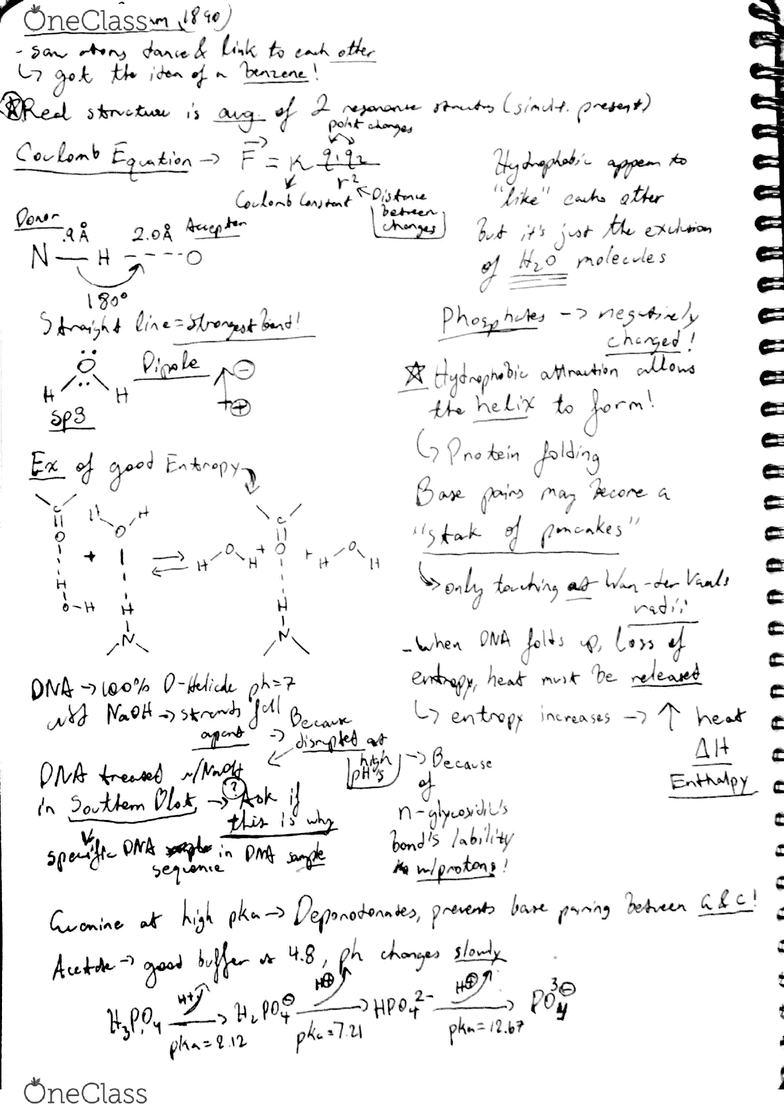 OneClass
m, 1890)
- saw atoms dance & link to each other
↳ got the idea of a benzene!
Real structure is avg. of 2 resonance structs (simult. present)
point charges
Coulomb Equation → F = K q1q2
r2
Coulomb Constant
Distance
between
charges
Donor
.9Å 2.0Å Acceptor
N — H ----O
180°
Straight line = strongest bond!
O
H H
sp3
Dipole
Ex of good Entropy
C H H
O O
+ ⇌ H O H + O + H O H
H
O-H H H
N N
DNA → 100% D-Helicle ph=7
NaOH → strands fall
apart → Because
disrupted at
high
pH's
→ Because
of
n-glycosidic's
bond's lability
w/protons!
DNA treated w/NaOH
in Southern Blot → Ask if
this is why
specific DNA in DNA sample
sequence
Hydrophobic appear to
"like" eachother
but it's just the exclusion
of H2O molecules
Phosphates → negatively
charged!
Hydrophobic attraction allows
the helix to form!
↳ Protein folding
Base pairs may become a
"stak of pancakes"
→ only touching at Wan-der Vaals
radii
- When DNA folds up, loss of
entropy, heat must be released
↳ entropy increases → ↑ heat
ΔH
Enthalpy
Guanine at high pka → Deponotonates, prevents base paring between G & C!
Acetate → good buffer @ 4.8, ph changes slowly
H3PO4 → H2PO4⊖ → HPO4 2- → PO4 3⊖
H+ H⊕ H⊕
pka=2.12 pka=7.21 pka=12.67
OneClass